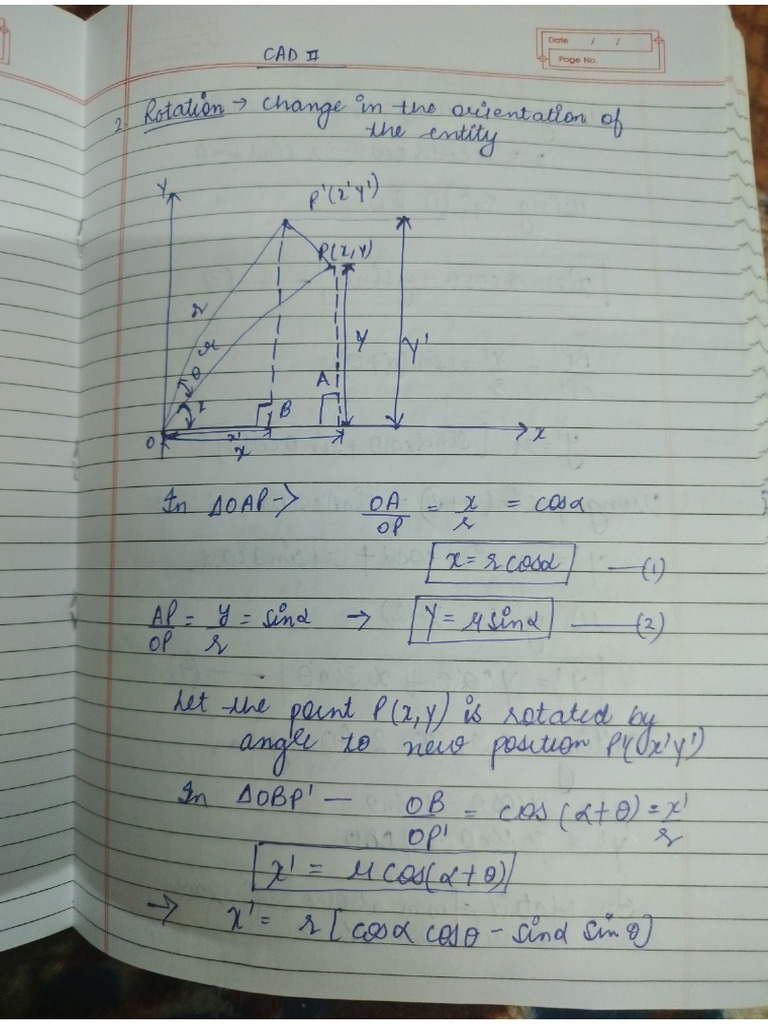 CAD II
Date / /
Page No.
2. Rotation → Change in the orientation of
the entity
Y
P'(x'Y')
P(x,Y)
r
r
θ
Y
Y'
A
B
O
x'
x
x
In ΔOAP → OA/OP = x/r = cosα
x = r cosα —(1)
AP/OP = y/r = sinα → Y = r sinα —(2)
Let the point P(x,Y) is rotated by
angle to new position P'(x'y')
In ΔOBP' — OB/OP' = cos(α+θ) = x'/r
x' = r cos(α+θ)
→ x' = r [cosα cosθ - sinα sinθ]